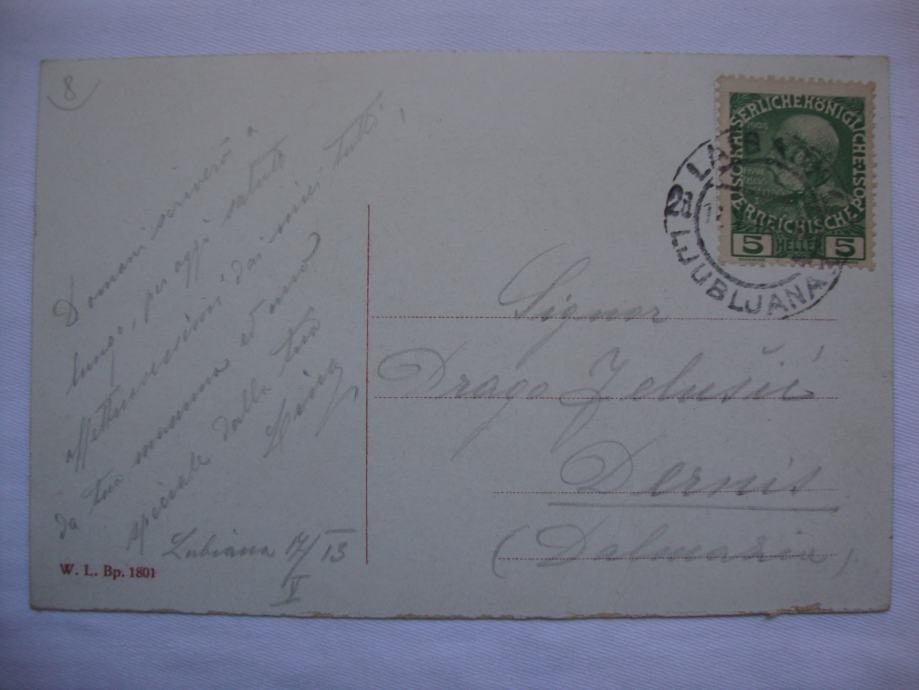 8
Domani scriverò a
lungo, per oggi saluti
affettuosissimi dai miei, tutti,
da tua mamma ed uno
speciale dalla tua
Lubiana 17/13
V
W. L. Bp. 1801
KAISERLICHEKÖNIGLICHE
ÖSTERREICHISCHE POST
5 HELLER 5
LAIBACH
2B LJUBLJANA
Signor
Drago Zelušić
Dernis
(Dalmazia)